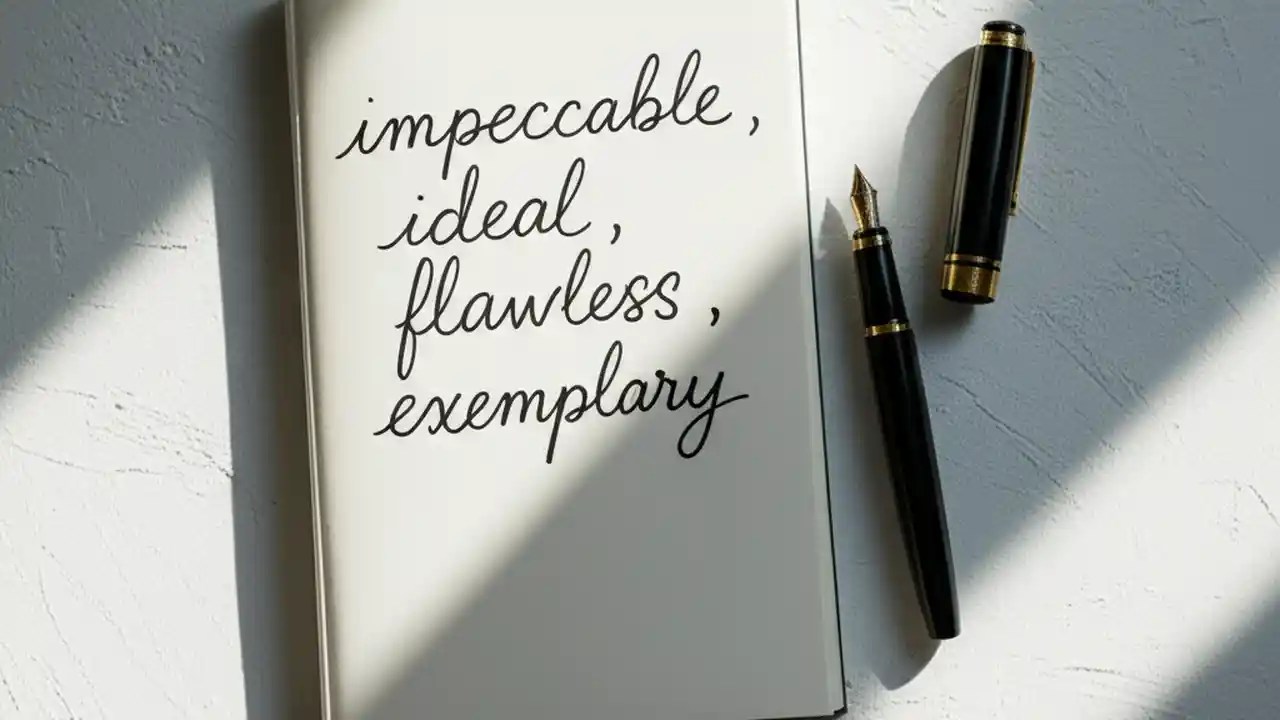 impeccable,
ideal,
flawless,
exemplary